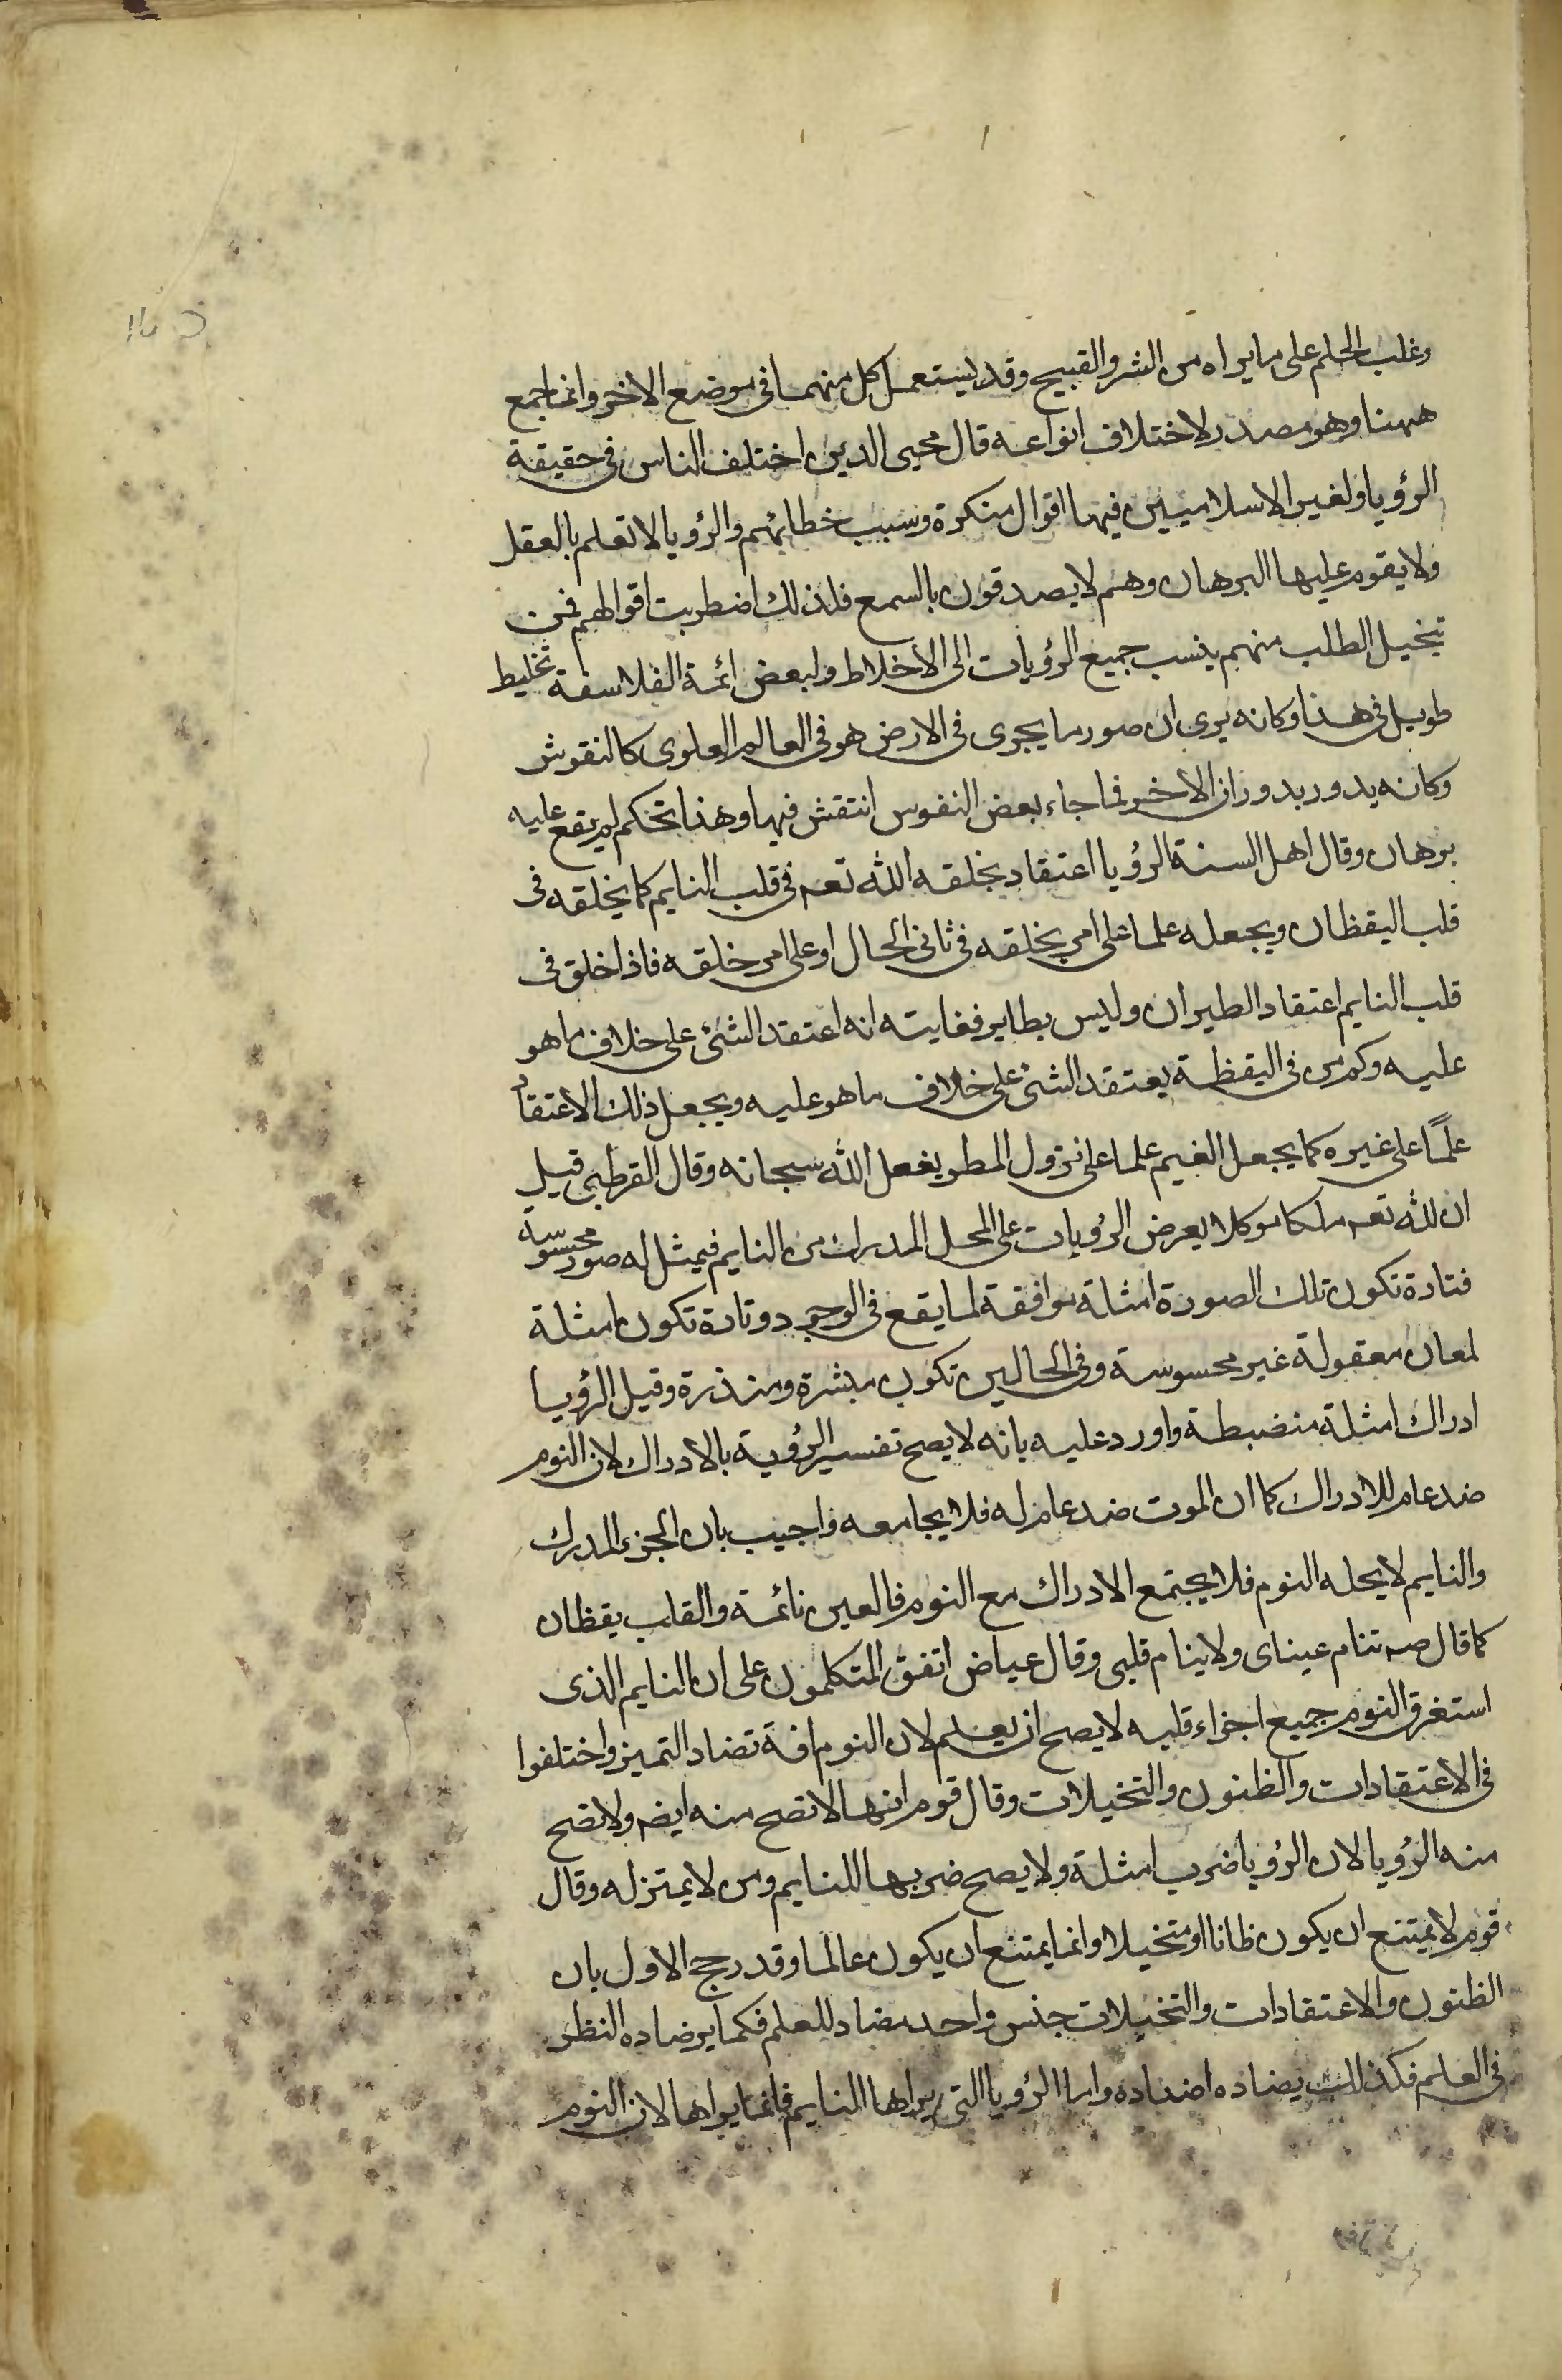 وغلب الحلم على ما يراه من الشر والقبيح وقد يستعمل كل منهما فى موضع الاخر وانما جمع
ههنا وهو مصدر لاختلاف انواعه قال محيى الدين اختلف الناس فى حقيقة
الرؤيا ولغير الاسلاميين فيها اقوال منكرة وسبب خطائهم والرؤيا لا تعلم بالعقل
ولا يقوم عليها البرهان وهم لا يصدقون بالسمع فلذلك اضطربت اقوالهم فمن
تخيل الطلب منهم ينسب جميع الرؤيات الى الاخلاط ولبعض ائمة الفلاسفة تخليط
طويل فى هذا وكانه يرى ان صور ما يجرى فى الارض هو فى العالم العلوى كالنقوش
وكانه يدور بدوران الاخر فما جاء بعض النفوس انتقش فيها وهذا تحكم لم يقع عليه
برهان وقال اهل السنة الرؤيا اعتقاد يخلقه الله تعم فى قلب النايم كما يخلقه فى
قلب اليقظان ويجعله علما على امر يخلقه فى ثانى الحال او على امر خلقه فاذا خلق فى
قلب النايم اعتقاد الطيران وليس بطاير فغايته انه اعتقد الشئ على خلاف ما هو
عليه وكم من فى اليقظة يعتقد الشئ على خلاف ما هو عليه ويجعل ذلك الاعتقاد
علمًا على غيره كما يجعل الغيم علما على نزول المطر بفعل الله سبحانه وقال القرطبى قيل
ان لله تعم ملكا موكلا يعرض الرؤيات على المحل المدرك من النايم فيمثل له صور محسوسة
فتادة تكون تلك الصورة امثلة موافقة لما يقع فى الوجود وتادة تكون امثلة
لمعان معقولة غير محسوسة وفى الحالين تكون مبشرة ومنذرة وقيل الرؤيا
ادراك امثلة منضبطة واورد عليه بانه لا يصح تفسير الرؤية بالادراك لان النوم
ضد عام للادراك كما ان الموت ضد عام له فلا يجامعه واجيب بان الجزء المدرك
والنايم لا يحله النوم فلا يجتمع الادراك مع النوم فالعين نائمة والقلب يقظان
كما قال صم تنام عيناى ولا ينام قلبى وقال عياض اتفق المتكلمون على ان النايم الذى
استغرق النوم جميع اجزاء قلبه لا يصح ان يعلم لان النوم افة تضاد التميز واختلفوا
فى الاعتقادات والظنون والتخيلات وقال قوم انها لا تصح منه ايضم ولا تصح
منه الرؤيا لان الرؤيا ضرب امثلة ولا يصح ضربها للنايم ومن لا يميز له وقال
قوم لا يمتنع ان يكون ظانا او متخيلا وانما يمتنع ان يكون عالما وقد رجح الاول بان
الظنون والاعتقادات والتخيلات جنس واحد مضاد للعلم فكما يرضاده النظر
فى العلم فكذلك يضاده اضداده واما الرؤيا التى يراها النايم فانما يراها لان النوم